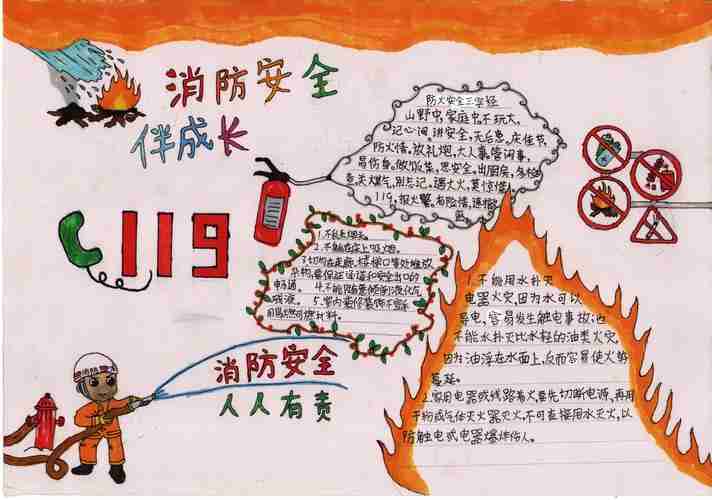 消防安全
伴成长
119
防火安全三字经
山野中,家庭中,不玩火,
记心间,讲安全,无后患,庆佳节,
防火情,放礼炮,大人事,管闲事,
易伤身,做饭菜,思安全,出厨房,多检
查,关煤气,别忘记,遇大火,莫惊慌!
119,报火警,有险情,速报
1.不乱丢烟头。
2.不躺在床上吸烟。
3.切勿在走廊、楼梯口等处堆放
杂物,要保证通道和安全出口的
畅通。4.不能随意倾倒液化气
残液。5.室内装修装饰不宜采
用易燃可燃材料。
1.不能用水扑灭
电器火灾,因为水可以
导电,容易发生触电事故;也
不能水扑灭比水轻的油类火灾,
因为油浮在水面上,反而容易使火势
蔓延。
2.家用电器或线路着火,要先切断电源,再用
干粉或气体灭火器灭火,不可直接用水灭火,以
防触电或电器爆炸伤人。
消防安全
人人有责